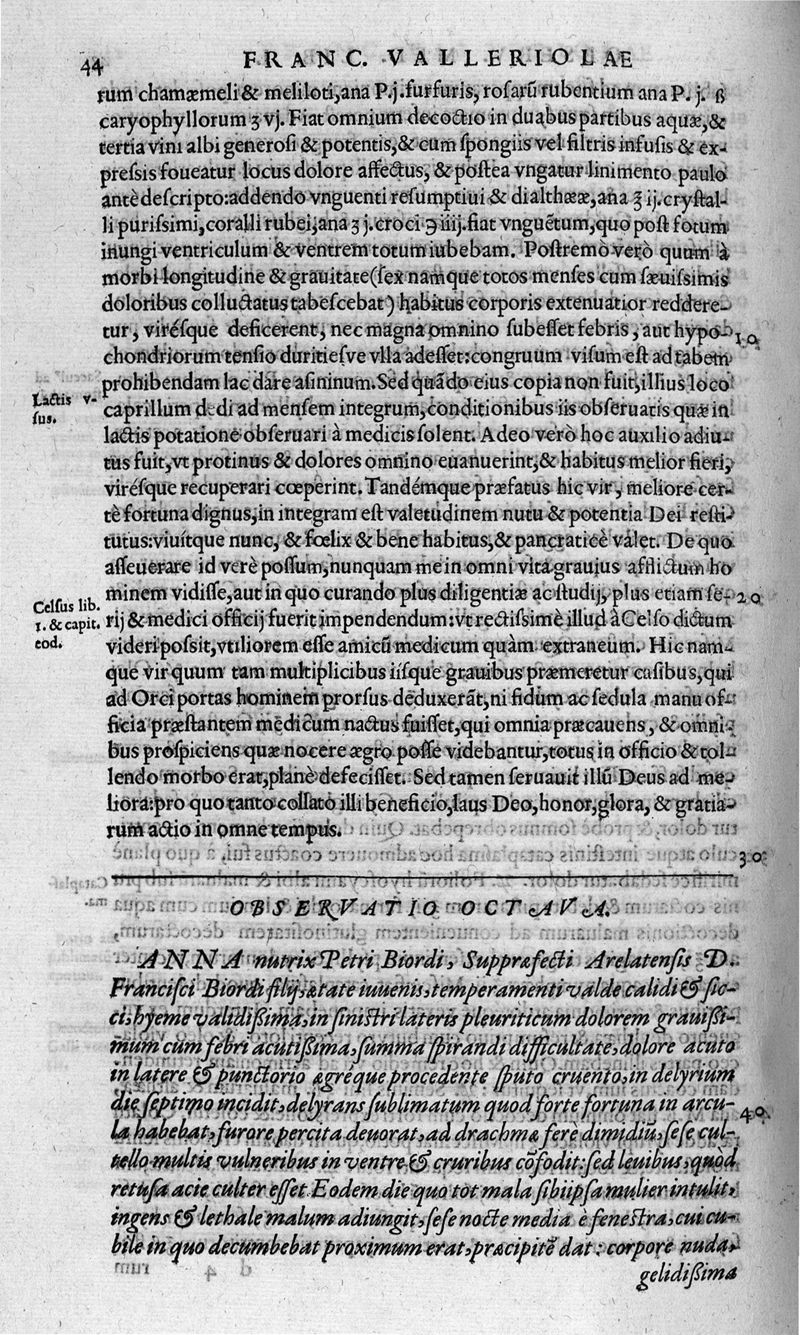 44 FRANC. VALLERIOLAE
rum chamæmeli & meliloti, ana P. j. furfuris, rosarũ rubentium ana P. j. ß
caryophyllorum ʒ vj. Fiat omnium decoctio in duabus partibus aquæ, &
tertia vini albi generosi & potentis, & cum spongiis vel filtris infusis & ex-
pressis foueatur locus dolore affectus, & postea vngatur linimento paulo
antè descripto: addendo vnguenti resumptiui & dialthææ, ana ℥ ij. crystal-
li purissimi, coralli rubei, ana ʒ j. croci ℈ iiij. fiat vnguẽtum, quo post fotum
inungi ventriculum & ventrem totum iubebam. Postremò verò quum à
morbi longitudine & grauitate (sex namque totos menses cum sæuissimis
doloribus colluctatus tabescebat) habitus corporis extenuatior reddere-
tur, virésque deficerent, nec magna omnino subesset febris, aut hypo- 10
chondriorum tensio duritiesve vlla adesset: congruum visum est ad tabem
prohibendam lac dare asininum. Sed quãdo eius copia non fuit, illius loco
Lactis v-
sus.
caprillum dedi ad mensem integrum, conditionibus iis obseruatis quæ in
lactis potatione obseruari à medicis solent. Adeo verò hoc auxilio adiu-
tus fuit, vt protinus & dolores omnino euanuerint, & habitus melior fieri,
virésque recuperari cœperint. Tandémque præfatus hic vir, meliore cer-
tè fortuna dignus, in integram est valetudinem nutu & potentia Dei resti-
tutus: viuitque nunc, & fœlix & bene habitus, & pancraticè valet. De quo
asseuerare id verè possum, nunquam me in omni vita grauius afflictum ho
minem vidisse, aut in quo curando plus diligentiæ ac studij, plus etiam se- 20
Celsus lib.
1. & capit.
eod.
rij & medici officij fuerit impendendum: vt rectissimè illud à Celso dictum
videri possit, vtiliorem esse amicũ medicum quàm extraneum. Hic nam-
que vir quum tam multiplicibus iisque grauibus præmeretur casibus, qui
ad Orci portas hominem prorsus deduxerãt, ni fidum ac sedula manu of-
ficia præstantem medicum nactus fuisset, qui omnia præcauens, & omni
bus prospiciens quæ nocere ægro posse videbantur, totus in officio & tol-
lendo morbo erat, planè defecisset. Sed tamen seruauit illũ Deus ad me-
liora: pro quo tanto collato illi beneficio, laus Deo, honor, glora, & gratia-
rum actio in omne tempus.
30
OBSERVATIO OCTAVA.
ANNA nutrix Petri Biordi, Suppræfecti Arelatensis D.
Francisci Biordi filij, ætate iuuenis, temperamenti valde calidi & sic-
ci, hyeme validissima, in sinistri lateris pleuriticum dolorem grauissi-
mum cum febri acutissima, summa spirandi difficultate, dolore acuto
in latere & punctorio ægréque procedente sputo cruento, in delyrium
die septimo incidit, delyrans sublimatum quod forte fortuna in arcu- 40
la habebat, furore percita deuorat, ad drachmæ ferè dimidiũ, sese cul-
tello multis vulneribus in ventre & cruribus cõfodit: sed leuibus, quòd
retusa acie culter esset. Eodem die quo tot mala sibiipsa mulier intulit,
ingens & lethale malum adiungit, sese nocte media è fenestra, cui cu-
bile in quo decumbebat proximum erat, præcipitẽ dat: corpore nuda,
gelidissima